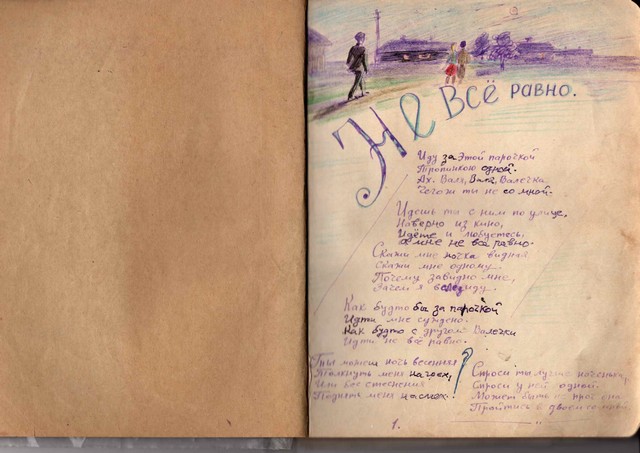 Не всё равно.
Иду за этой парочкой
Тропинкою одной.
Ах. Валя, Валя, Валечка
Чегож ты не со мной.
Идешь ты с ним по улице,
Наверно из кино,
Идёте и любуетесь,
А мне не всё равно.
Скажи мне ночка видная
Скажи мне одному.
Почему завидно мне,
Зачем я вслед иду.
Как будто бы за парочкой
Идти мне суждено.
Как будто с другом Валечки
Идти не всё равно.
Ты можеш ночь весенняя
Толкнуть меня на грех,
Или без стеснения
Поднять меня на смех.
Спроси ты лучше ноченька,
Спроси у ней одной.
Может быть
1.